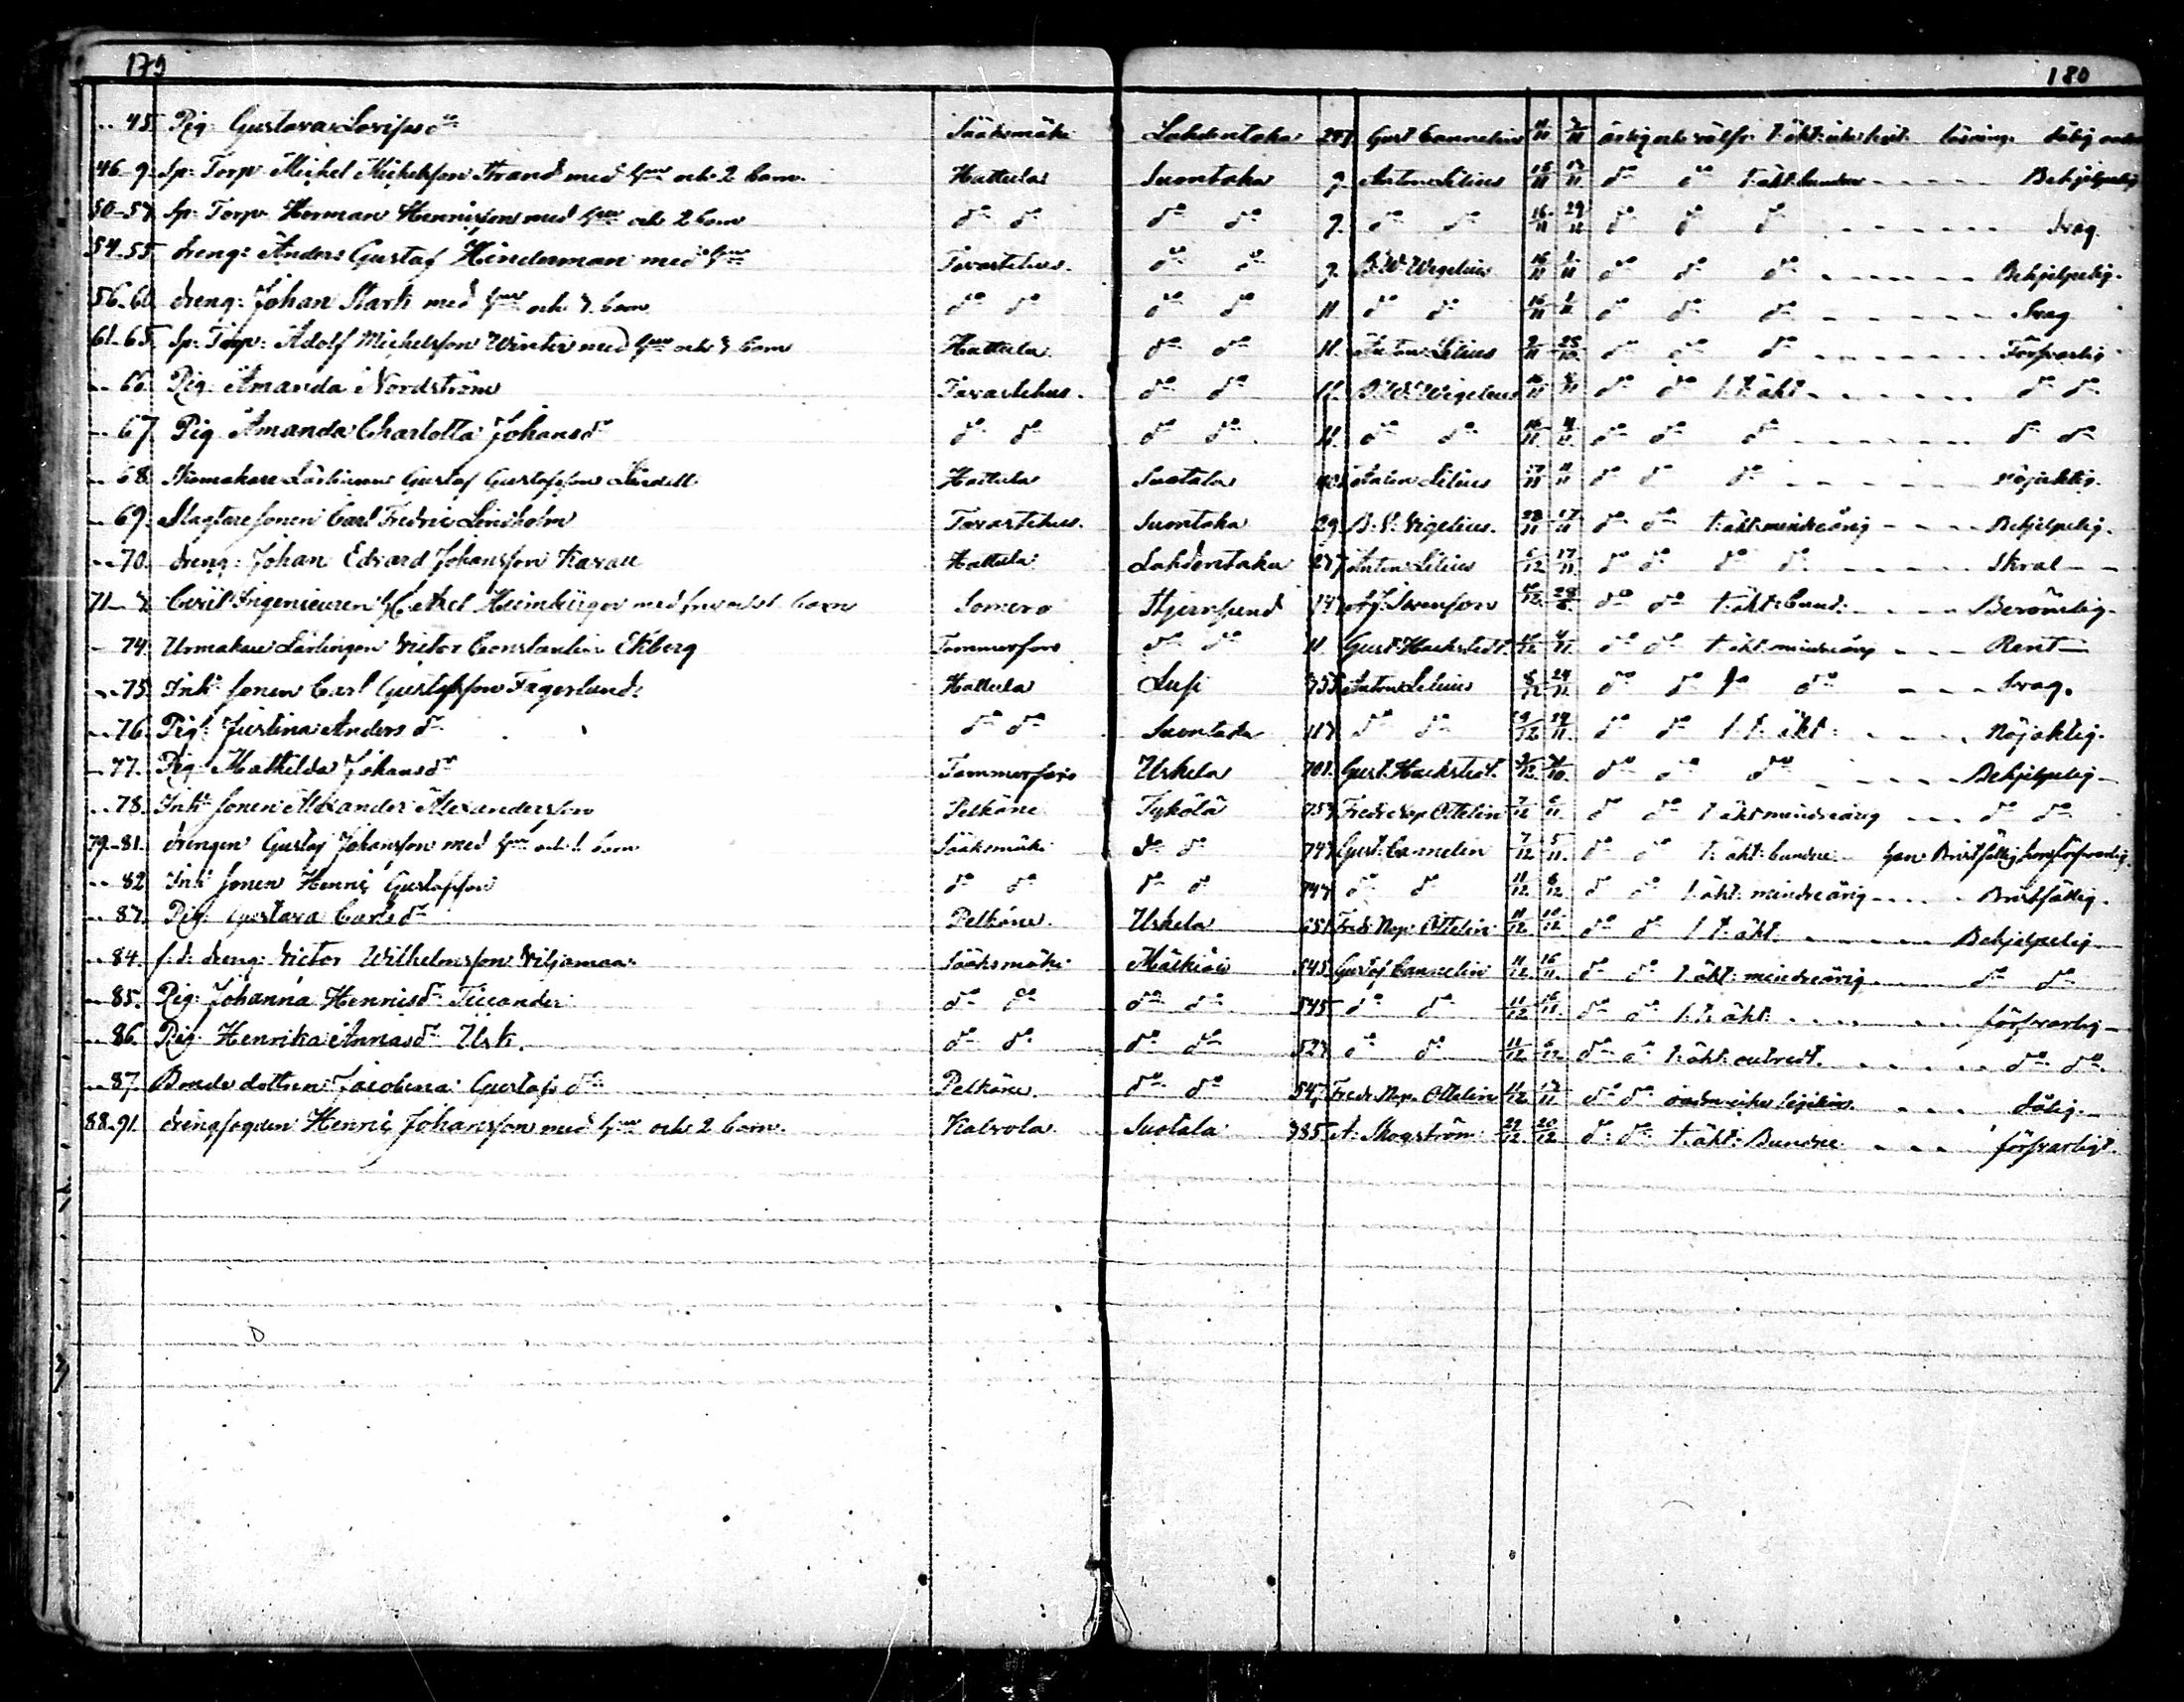 179
180
45. Pig: Gustava Lovisa dr Sääksmäki Lahdentaka 257. Gust Cannelin 11/11 7/11 ärlig och välfr. t. äkt: icke häst: läsning. dålig
46-9. Sp: Torp Mickel Mickelsson Strand med hu och 2 barn. Hattula Suontaka 9. Anton Lilius 15/11 13/11 do do t: äkt: bunden Behjelpelig
50-53. Sp: Torp: Herman Henriksson med hu och 2 barn do do do do 9. do do 16/11 29/12 do do do Svag.
54-55. dreng: Anders Gustaf Hinderman med hu Tavastehus. do do 9. B. W. Wegelius 16/11 1/11 do do do Behjelpelig.
56-60. dreng: Johan Stark med hu och 3 barn do do do do 11. do do 16/11 1/11 do do do Svag
61-65. Sp: Torp: Adolf Mickelsson Winter med hu och 3 barn Hattula do do 11. Anton Lilius 9/11 25/10 do do do Försvarlig
66. Pig: Amanda Nordström Tavastehus. do do 11. B. W. Wegelius 16/11 do do t. äkt do do
67. Pig Amanda Charlotta Johansdr do do do do 11. do do 16/11 4/11 do do do do do
68. Skomakare Lärlingen Gustaf Gustafsson Lindell Hattula Suotala 401 Anton Lilius 17/11 11/11 do do do nöjaktig.
69. Slagtare sonen Carl Fredric Lindholm Tavastehus. Suontaka 29. B. W. Wegelius. 28/11 17/11 do do t: äkt: mindreårig Behjelpelig.
70. dreng: Johan Edvard Johansson Karau Hattula Lahdentaka 257 Anton Lilius 6/12 17/11 do do do do Skral
71-3. Civil Ingenieuren Axel Heimbürger med fru och 1. barn Somero Stjernsund 147 A. J. Svensson /12 28/ do do t: äkt: bund: Berömlig.
74. Urmakare Lärlingen Victor Constantin Ekberg Tammerfors do do 11. Gust: Hackstedt. /12 4/11. do do t: äkt: mindreårig Rent
75. Inh: sonen Carl Gustafsson Fagerlund: Hattula Lusi 353 Anton Lilius 8/12 24/11 do do do do Svag.
76. Pig: Justina Anders dr do do Suontaka 117. do do 29/12 29/11. do do t. äkt: Nöjaktig.
77. Pig: Mathilda Johansdr Tammerfors Urkela 701. Gust: Hackstedt. /12 /10. do do do Behjelpelig
78. Inh: sonen Alexander Alexandersson Pelkäne Tykölä 753 Fredr Nep. Ottelin 7/12 6/11. do do t. äkt mindreårig do do
79-81. drengen Gustaf Johansson med hu och 1. barn Sääksmäki do do 743 Gust: Cannelin 7/12. 5/11. do do t. äkt: bundne han Bristfällig hon försvarlig.
82 Inh: sonen Henric Gustafsson do do do do 747 do do 11/12 6/12 do do t. äkt: mindreårig Bristfällig.
83. Pig: Gustava Carls dr Pelkäne. Urkela 651 Fredr: Nep: Ottelin 11/12. 10/12. do do t. äkt. Behjelpelig
84. f. d. dreng: Victor Wilhelmsson Viljamaa Sääksmäki Mälkiäis 545. Gustaf Cannelin 11/12 16/11. do do t. äkt: mindreårig do do
85. Pig: Johanna Henricsdr Ticcander do do do do 545 do do 11/12 16/11. do do t. äkt: försvarlig
86. Pig: Henrika Annasdr Ursk. do do do do 527 do do 11/12 6/12 do do t: äkt: outredt. do do.
87. Bonde dottren Jacobina Gustafs dr Pelkäne. do do 547. Fredr: Nep. Ottelin 11/12 17/11 do do dålig.
88-91. drengfogden Henric Johansson med hu och 2 barn. Kalvola Suotala 385 A. Skogström 29/12. 20/12 do: do t: äkt: Bundne försvarligt.